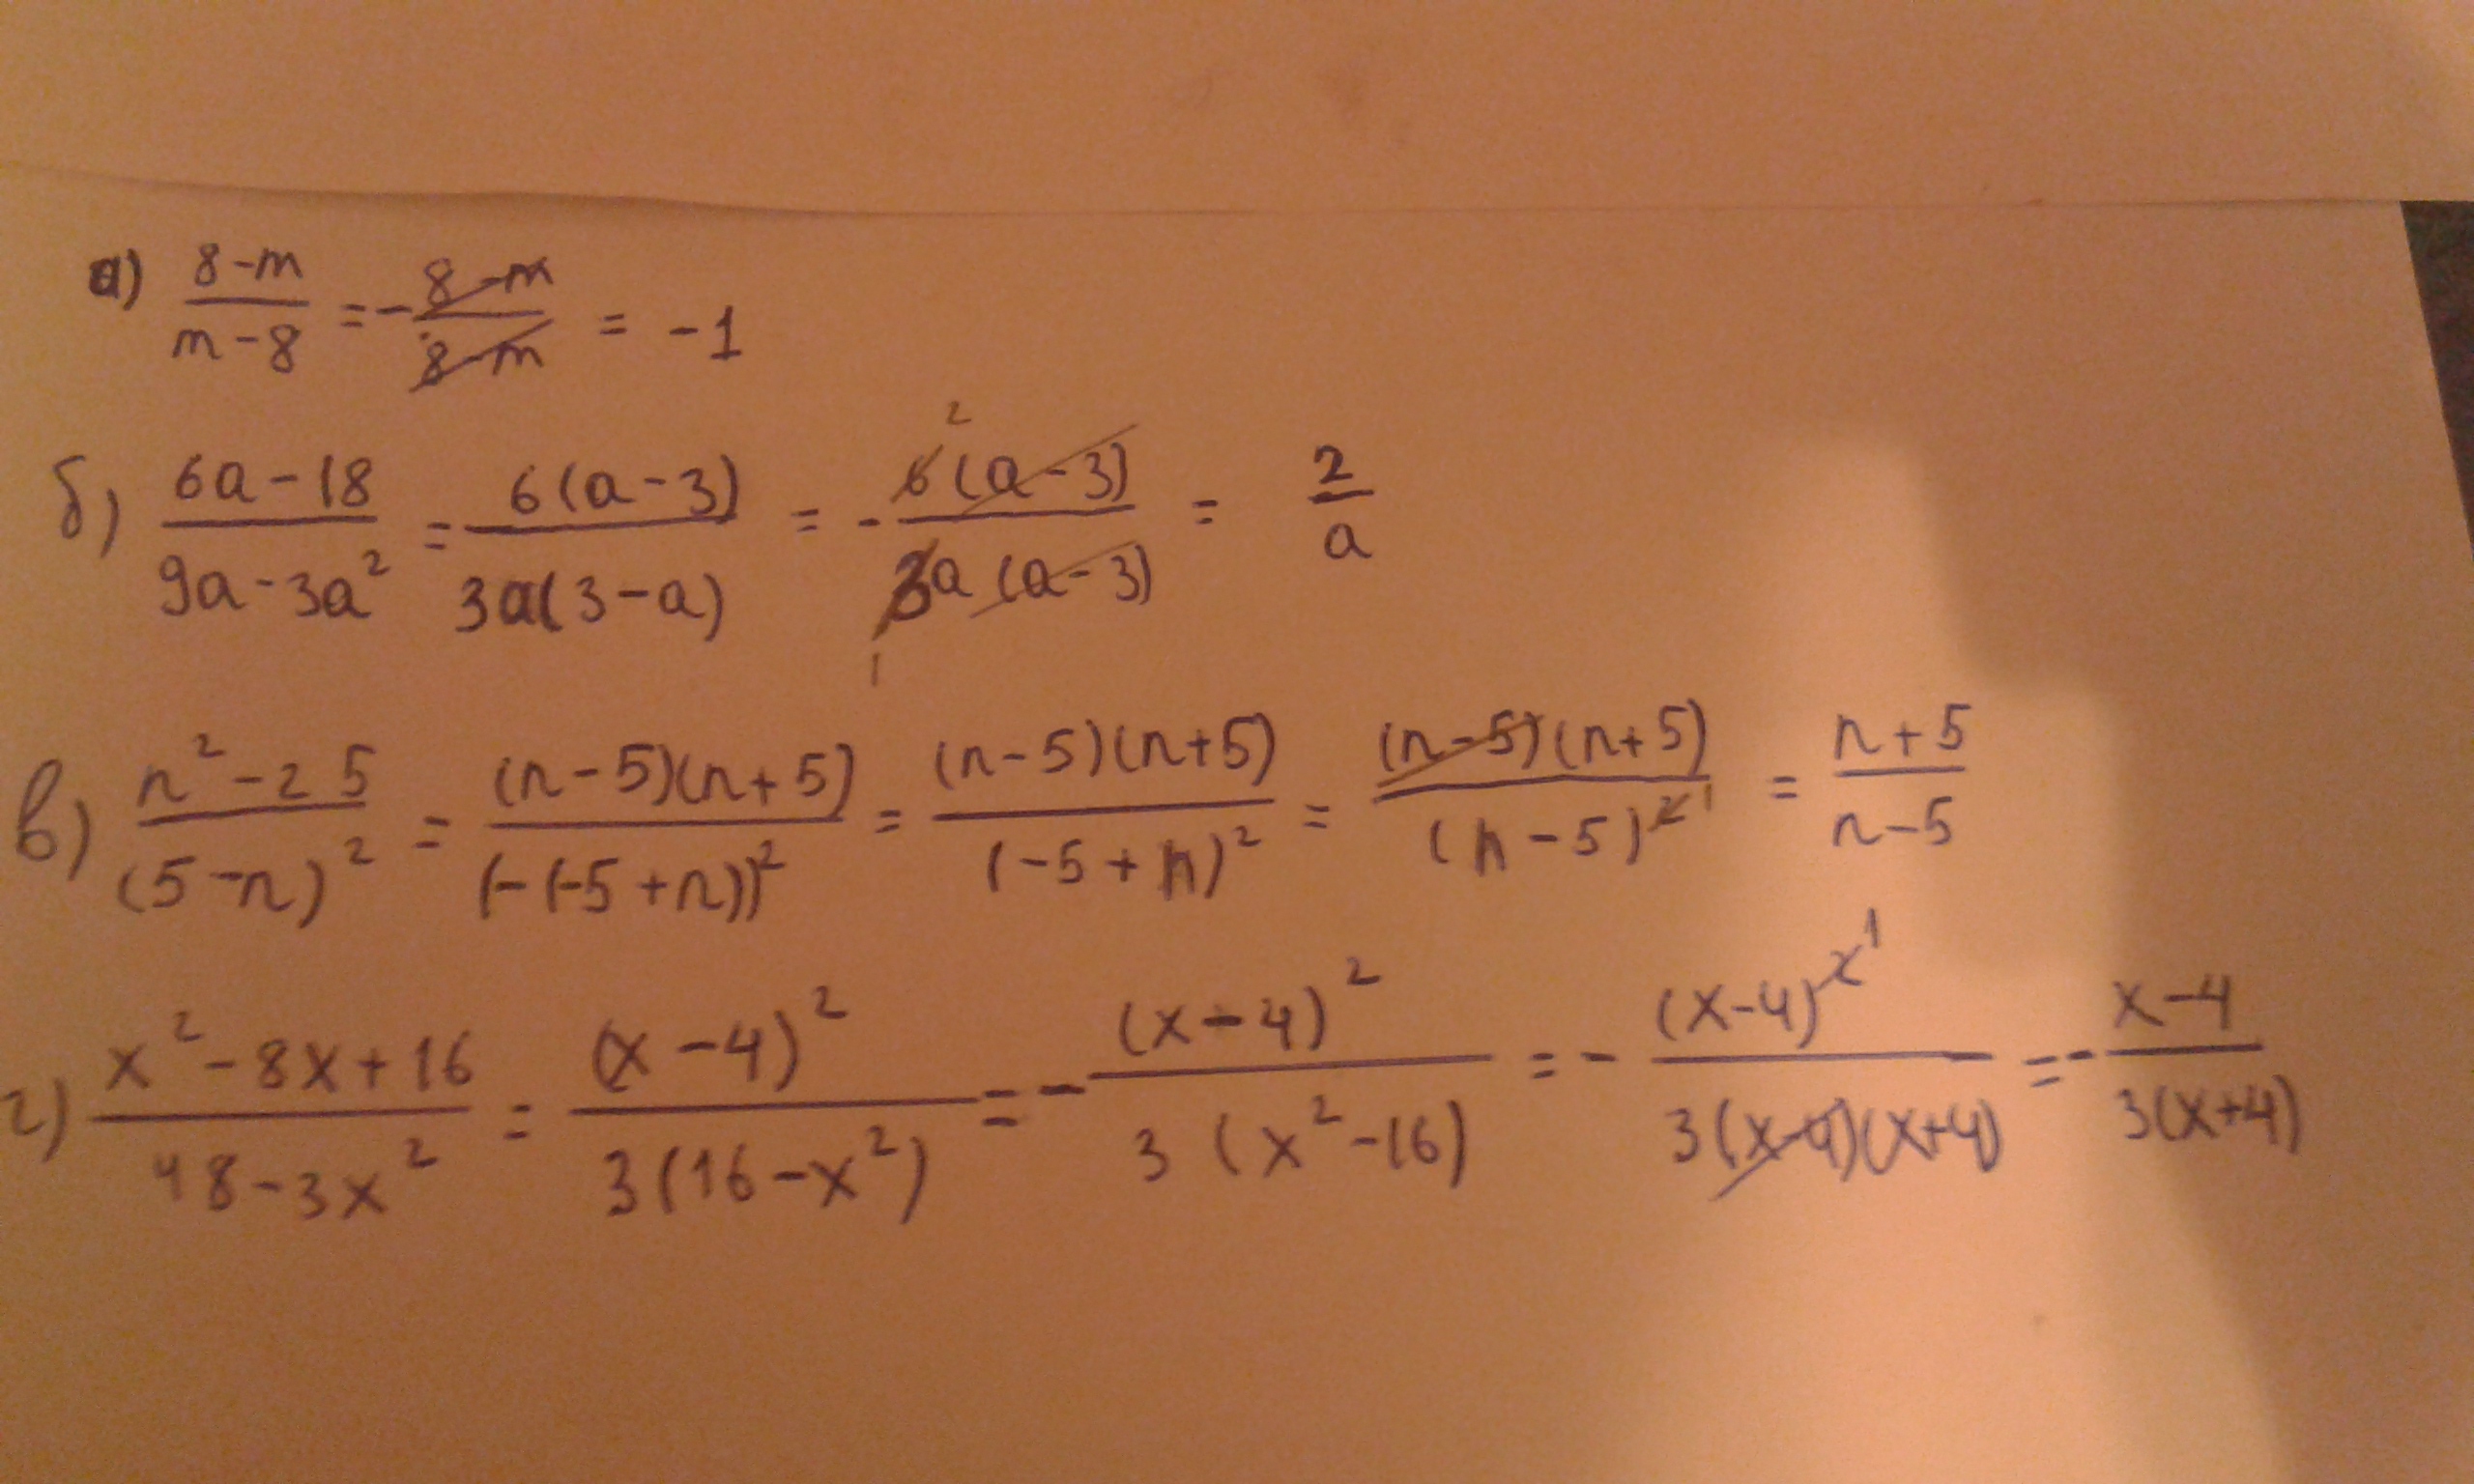 а) (8-m)/(m-8) = -(8-m)/(8-m) = -1
б) (6a-18)/(9a-3a²) = 6(a-3)/(3a(3-a)) = - 6²(a-3)/(3₁a(a-3)) = 2/a
в) (n²-25)/(5-n)² = (n-5)(n+5)/(-(-5+n))² = (n-5)(n+5)/(-5+n)² = (n-5)(n+5)/(n-5)²¹ = (n+5)/(n-5)
г) (x²-8x+16)/(48-3x²) = (x-4)²/(3(16-x²)) = - (x-4)²/(3(x²-16)) = - (x-4)²¹/(3(x-4)(x+4)) = - (x-4)/(3(x+4))